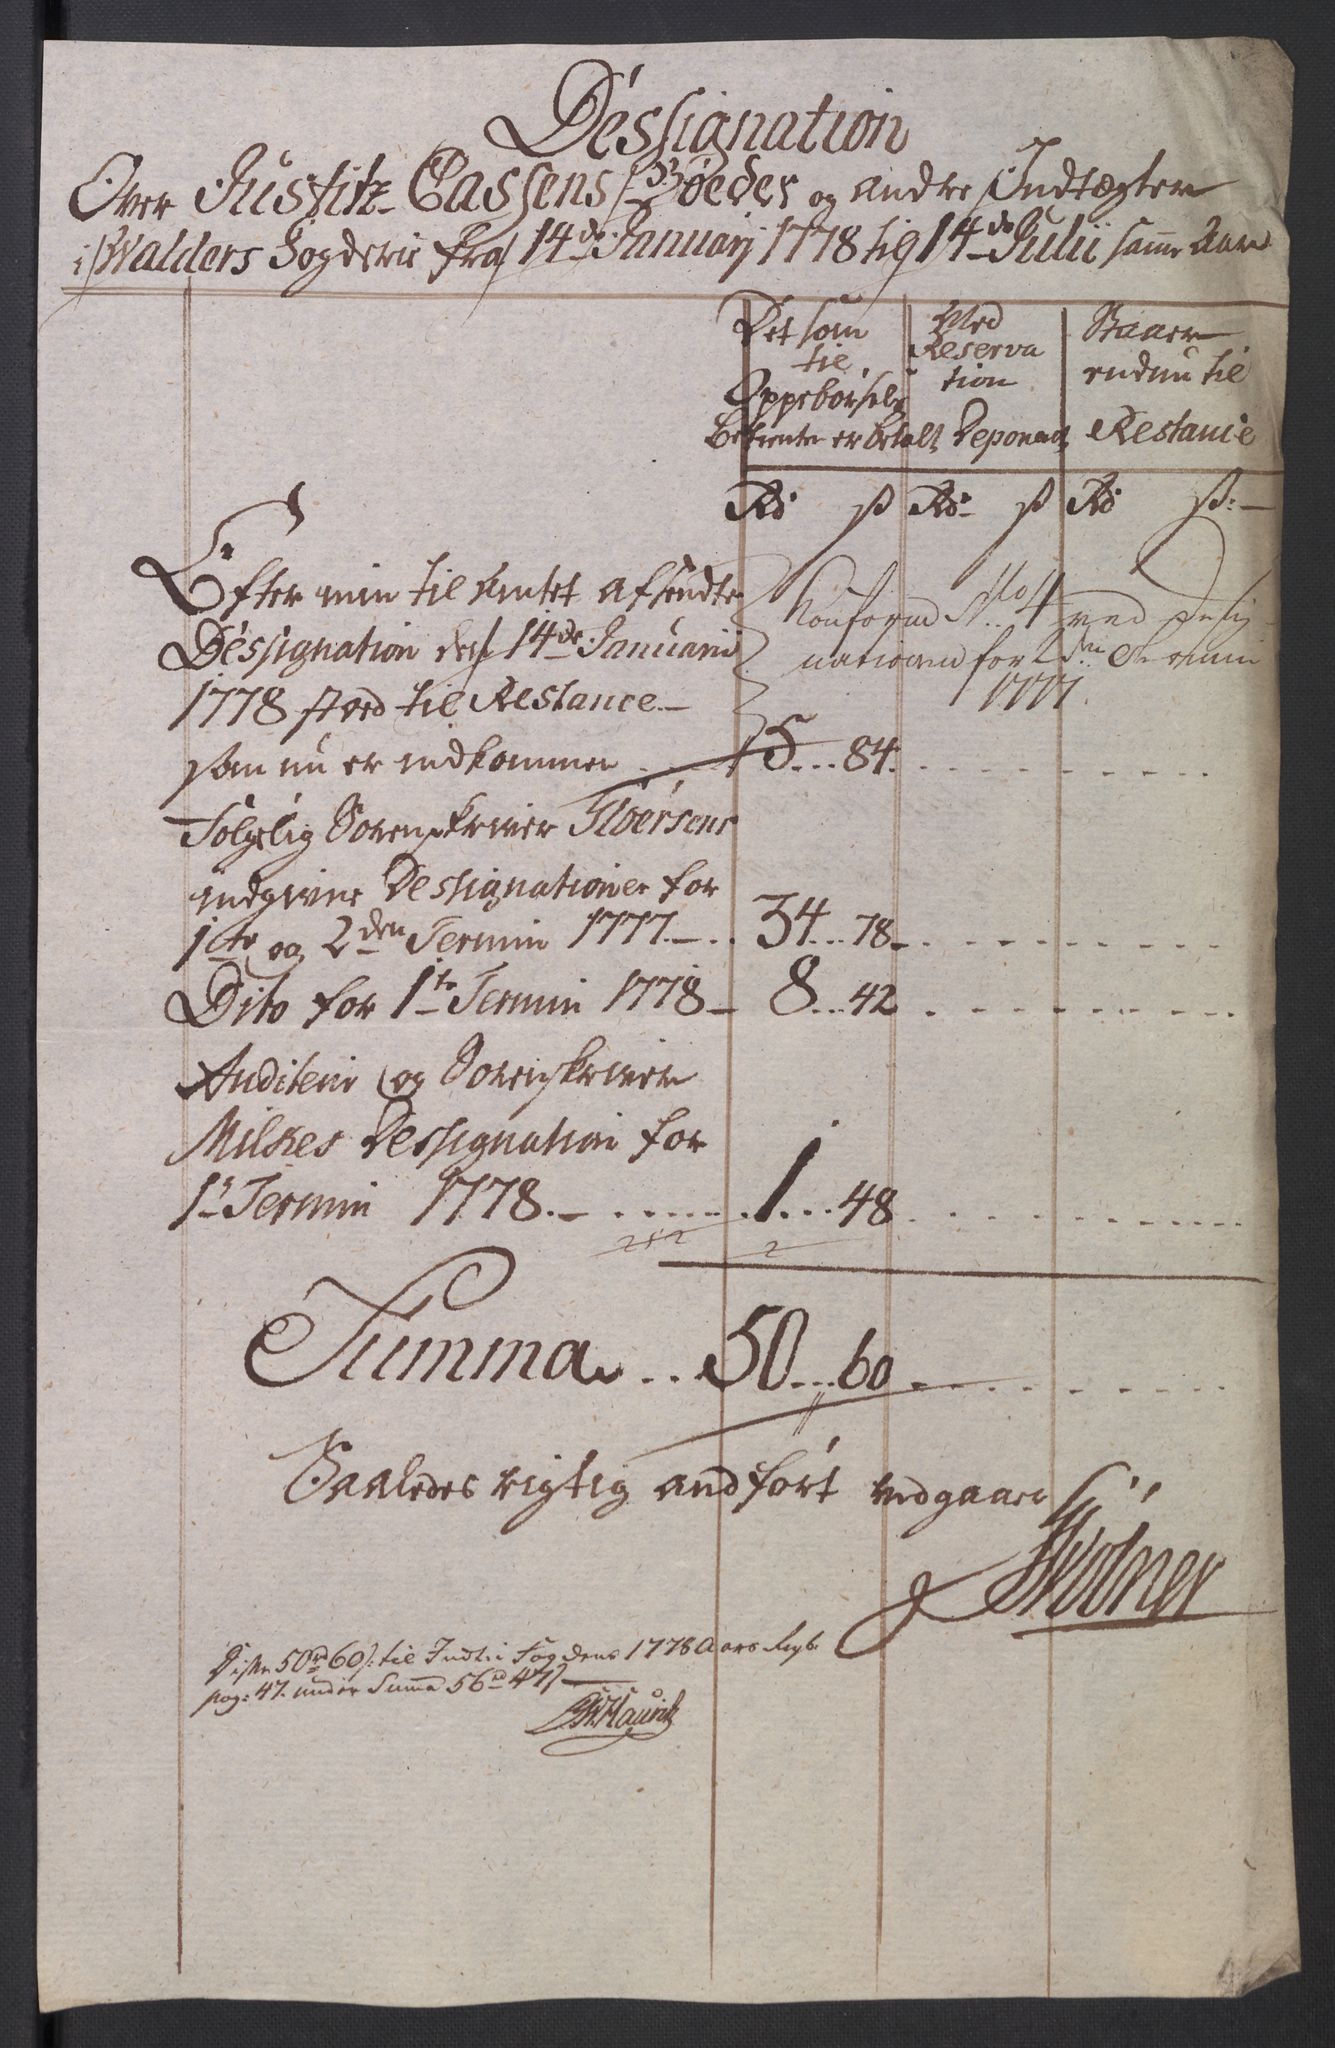 Dessignation
Over Justitz Cassens Bøeder og andre Indtægter
i Walders Fogderie fra 14de Januarj 1778 til 14de Julii samme Aar
Det som
til
Oppebørsels
Betiente er betalt
Med
Reserva
tion
Deponert
Staaer
endnu til
Restance
Rd ß Rd ß Rd ß
Efter min til Amtet afsendte
Dessignation des 14de Januarii
1778 stod til Restance
som nu er indkommen 5 84
Conform No 4 ved Desig
nationen for 2den Termin
1777.
Følgelig Sorenskriver
indgivne Dessignationer for
1ste og 2den Termin 1777 34 78
Dito for 1te Termin 1778 8 42
Auditeur og Sorenskriver
Dessignation for
1te Termin 1778 1 48
252 2
Summa 50 60
Saaledes rigtig andført vedgaaer
Disse 50rd 60ß til Indtægt i Fogdens 1778 Aars Regb.
pag: 47. under Summa 56rd 47ß